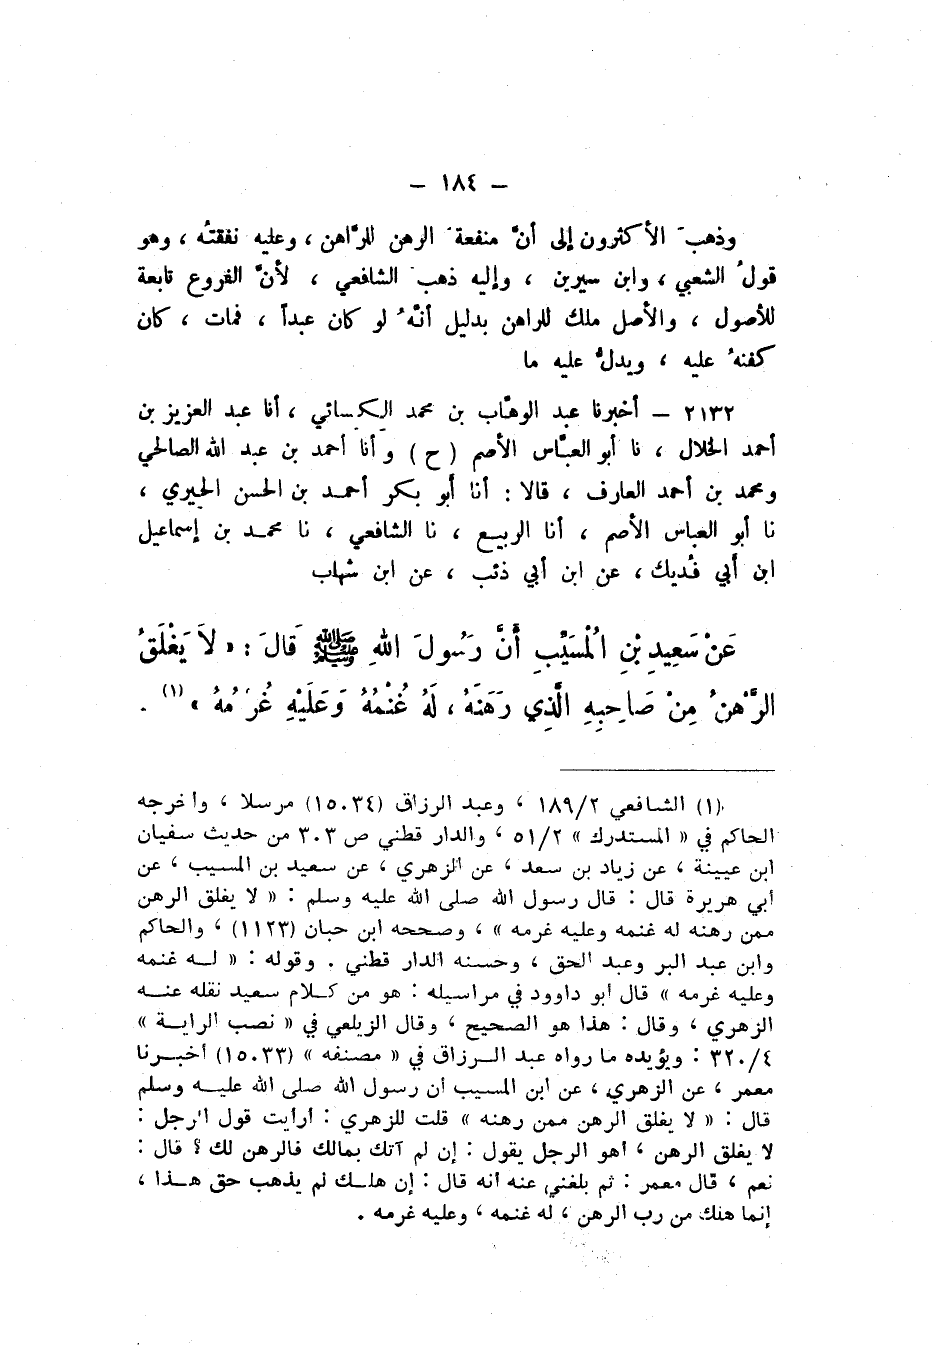 – ١٨٤ –
وذهبَ الأكثرون إلى أنَّ منفعةَ الرهن للرَّاهن ، وعليه نفقتُه ، وهو
قولُ الشعبي ، وابن سيرين ، وإليه ذهبَ الشافعي ، لأنَّ الفروع تابعة
للأصول ، والأصل ملك للراهن بدليل أنَّهُ لو كان عبداً ، فمات ، كان
كفنهُ عليه ، ويدلُّ عليه ما
٢١٣٢ – أخبرنا عبد الوهَّاب بن محمد الكسائي ، أنا عبد العزيز بن
أحمد الخلال ، نا أبو العبَّاس الأصم ( ح ) وأنا أحمد بن عبد الله الصالحي
ومحمد بن أحمد العارف ، قالا : أنا أبو بكر أحمد بن الحسن الحيري ،
نا أبو العباس الأصم ، أنا الربيع ، نا الشافعي ، نا محمد بن إسماعيل
ابن أبي فديك ، عن ابن أبي ذئب ، عن ابن شهاب
عَنْ سَعِيدِ بْنِ الْمُسَيِّبِ أَنَّ رَسُولَ اللهِ ﷺ قَالَ : « لاَ يَغْلَقُ
الرَّهْنُ مِنْ صَاحِبِهِ الَّذِي رَهَنَهُ ، لَهُ غُنْمُهُ وَعَلَيْهِ غُرْمُهُ » (١) .
(١) الشافعي ١٨٩/٢ ، وعبد الرزاق (١٥٠٣٤) مرسلا ، وأخرجه
الحاكم في « المستدرك » ٥١/٢ ، والدار قطني ص ٣٠٣ من حديث سفيان
ابن عيينة ، عن زياد بن سعد ، عن الزهري ، عن سعيد بن المسيب ، عن
أبي هريرة قال : قال رسول الله صلى الله عليه وسلم : « لا يغلق الرهن
ممن رهنه له غنمه وعليه غرمه » ، وصححه ابن حبان (١١٢٣) ، والحاكم
وابن عبد البر وعبد الحق ، وحسنه الدار قطني . وقوله : « له غنمه
وعليه غرمه » قال أبو داوود في مراسيله : هو من كلام سعيد نقله عنه
الزهري ، وقال : هذا هو الصحيح ، وقال الزيلعي في « نصب الراية »
٣٢٠/٤ : ويؤيده ما رواه عبد الرزاق في « مصنفه » (١٥٠٣٣) أخبرنا
معمر ، عن الزهري ، عن ابن المسيب أن رسول الله صلى الله عليه وسلم
قال : « لا يغلق الرهن ممن رهنه » قلت للزهري : أرأيت قول الرجل :
لا يغلق الرهن ، أهو الرجل يقول : إن لم آتك بمالك فالرهن لك ؟ قال :
نعم ، قال معمر : ثم بلغني عنه أنه قال : إن هلك لم يذهب حق هذا ،
إنما هلك من رب الرهن ، له غنمه ، وعليه غرمه .